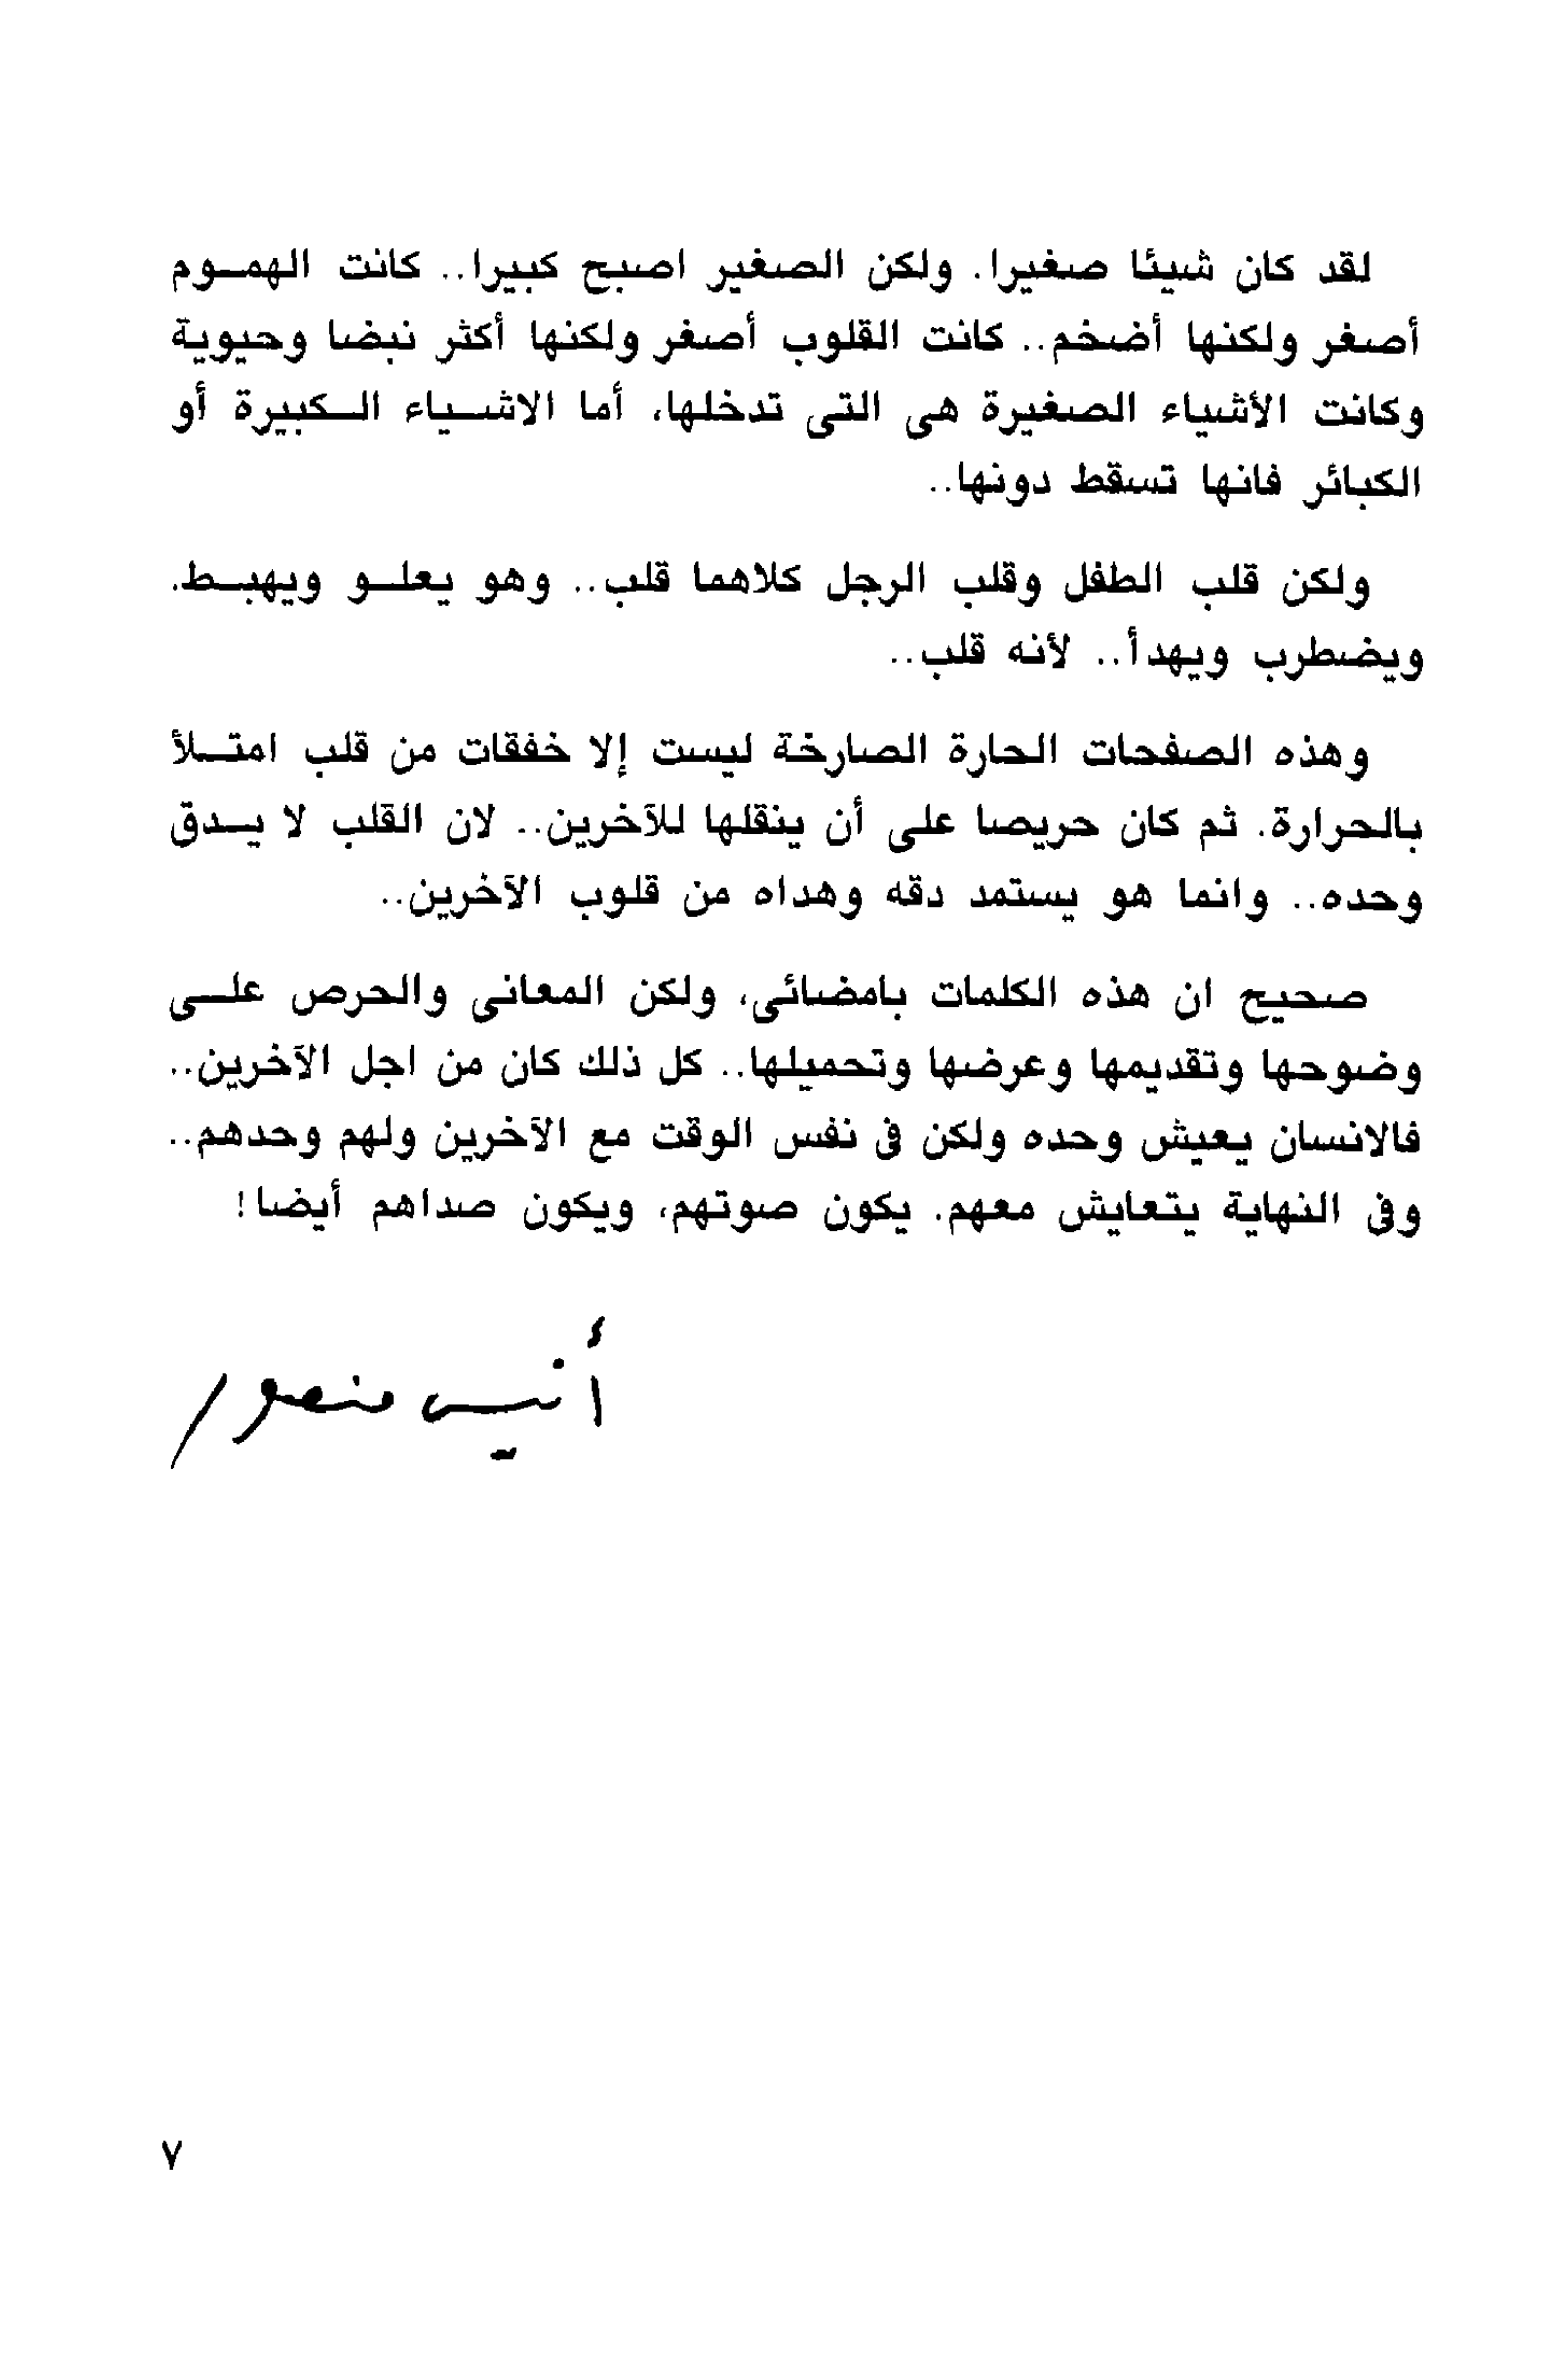 لقد كان شيئا صغيرا. ولكن الصغير اصبح كبيرا.. كانت الهمـوم
أصغر ولكنها أضخم.. كانت القلوب أصغر ولكنها أكثر نبضا وحيوية
وكانت الأشياء الصغيرة هى التى تدخلها، أما الاشـياء الـكبيرة أو
الكبائر فانها تسقط دونها..
ولكن قلب الطفل وقلب الرجل كلاهما قلب.. وهو يعلـو ويهبـط.
ويضطرب ويهدأ.. لأنه قلب..
وهذه الصفحات الحارة الصارخة ليست إلا خفقات من قلب امتـلأ
بالحرارة. ثم كان حريصا على أن ينقلها للآخرين.. لان القلب لا يـدق
وحده.. وانما هو يستمد دقه وهداه من قلوب الآخرين..
صحيح ان هذه الكلمات بامضائى، ولكن المعانى والحرص علـى
وضوحها وتقديمها وعرضها وتحميلها.. كل ذلك كان من اجل الآخرين..
فالانسان يعيش وحده ولكن فى نفس الوقت مع الآخرين ولهم وحدهم..
وفى النهاية يتعايش معهم. يكون صوتهم، ويكون صداهم أيضا!
أنيس منصور
٧